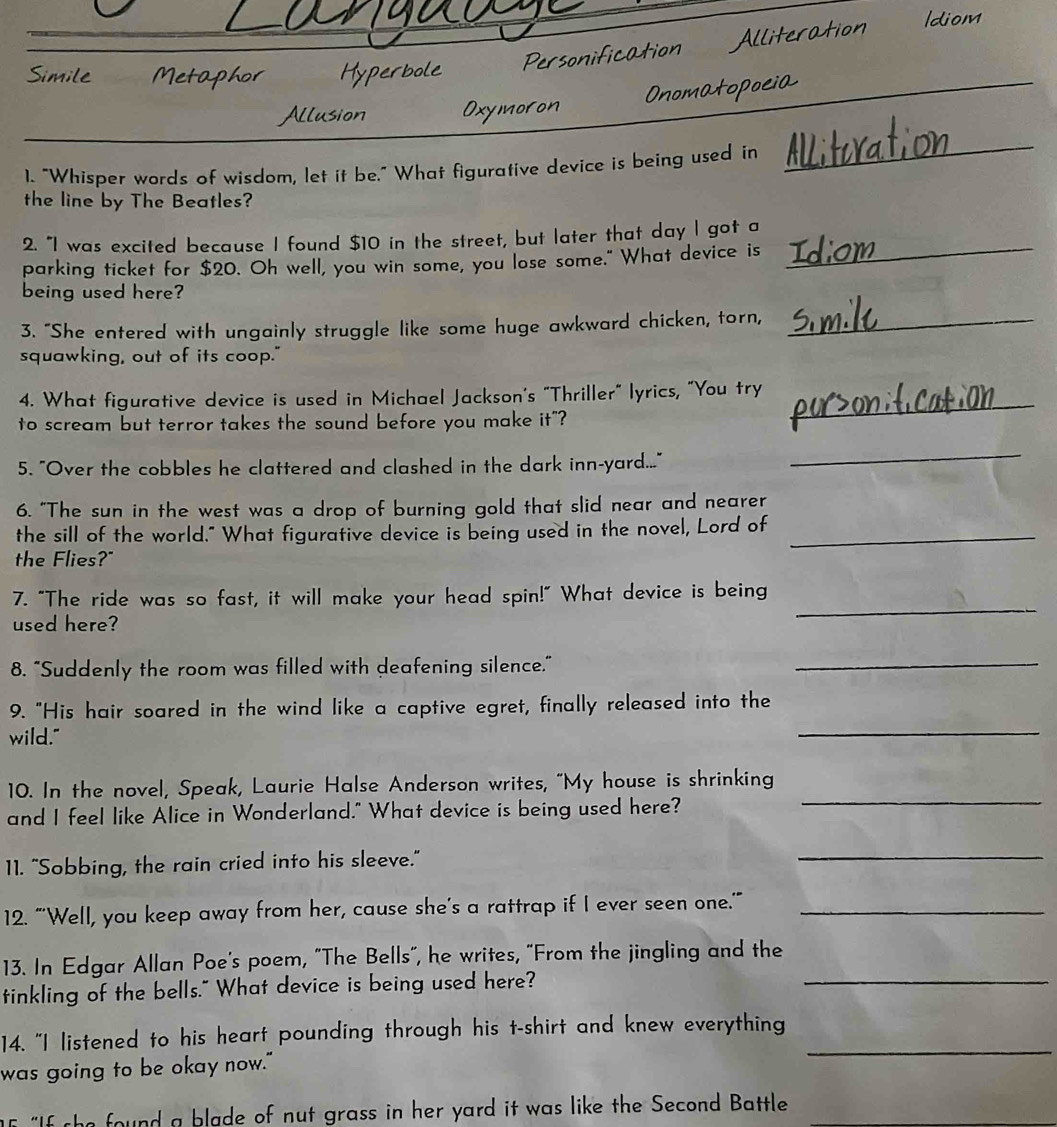 Language
Simile Metaphor Hyperbole Personification Alliteration Idiom
Allusion Oxymoron Onomatopoeia
1. "Whisper words of wisdom, let it be." What figurative device is being used in Alliteration
the line by The Beatles?
2. "I was excited because I found $10 in the street, but later that day I got a
parking ticket for $20. Oh well, you win some, you lose some." What device is Idiom
being used here?
3. "She entered with ungainly struggle like some huge awkward chicken, torn, Simile
squawking, out of its coop."
4. What figurative device is used in Michael Jackson's "Thriller" lyrics, "You try personification
to scream but terror takes the sound before you make it"?
5. "Over the cobbles he clattered and clashed in the dark inn-yard..."
6. "The sun in the west was a drop of burning gold that slid near and nearer
the sill of the world." What figurative device is being used in the novel, Lord of
the Flies?"
7. "The ride was so fast, it will make your head spin!" What device is being
used here?
8. "Suddenly the room was filled with deafening silence."
9. "His hair soared in the wind like a captive egret, finally released into the
wild."
10. In the novel, Speak, Laurie Halse Anderson writes, "My house is shrinking
and I feel like Alice in Wonderland." What device is being used here?
11. "Sobbing, the rain cried into his sleeve."
12. "'Well, you keep away from her, cause she's a rattrap if I ever seen one.'"
13. In Edgar Allan Poe's poem, "The Bells", he writes, "From the jingling and the
tinkling of the bells." What device is being used here?
14. "I listened to his heart pounding through his t-shirt and knew everything
was going to be okay now."
"If she found a blade of nut grass in her yard it was like the Second Battle